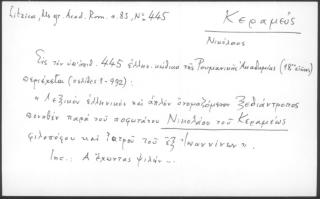 Litzica, Ms gr. Acad. Rom. σ. 83, Nº 445
Κεραμεύς
Νικόλαος
Εἰς τὸν ὑπ' ἀριθ. 445 ἑλλην. κώδικα τῆς Ρουμανικῆς Ἀκαδημίας (18ου αἰῶνος)
περιέχεται (σελίδες 1-992):
"Λεξικὸν ἑλληνικὸν καὶ ἁπλὸν ὀνομαζόμενον
παρὰ τοῦ σοφωτάτου Νικολάου τοῦ Κεραμέως
φιλοσόφου καὶ ἰατροῦ τοῦ ἐξ Ἰωαννίνων".
Inc.: Α ἔχοντας ψιλὴν...